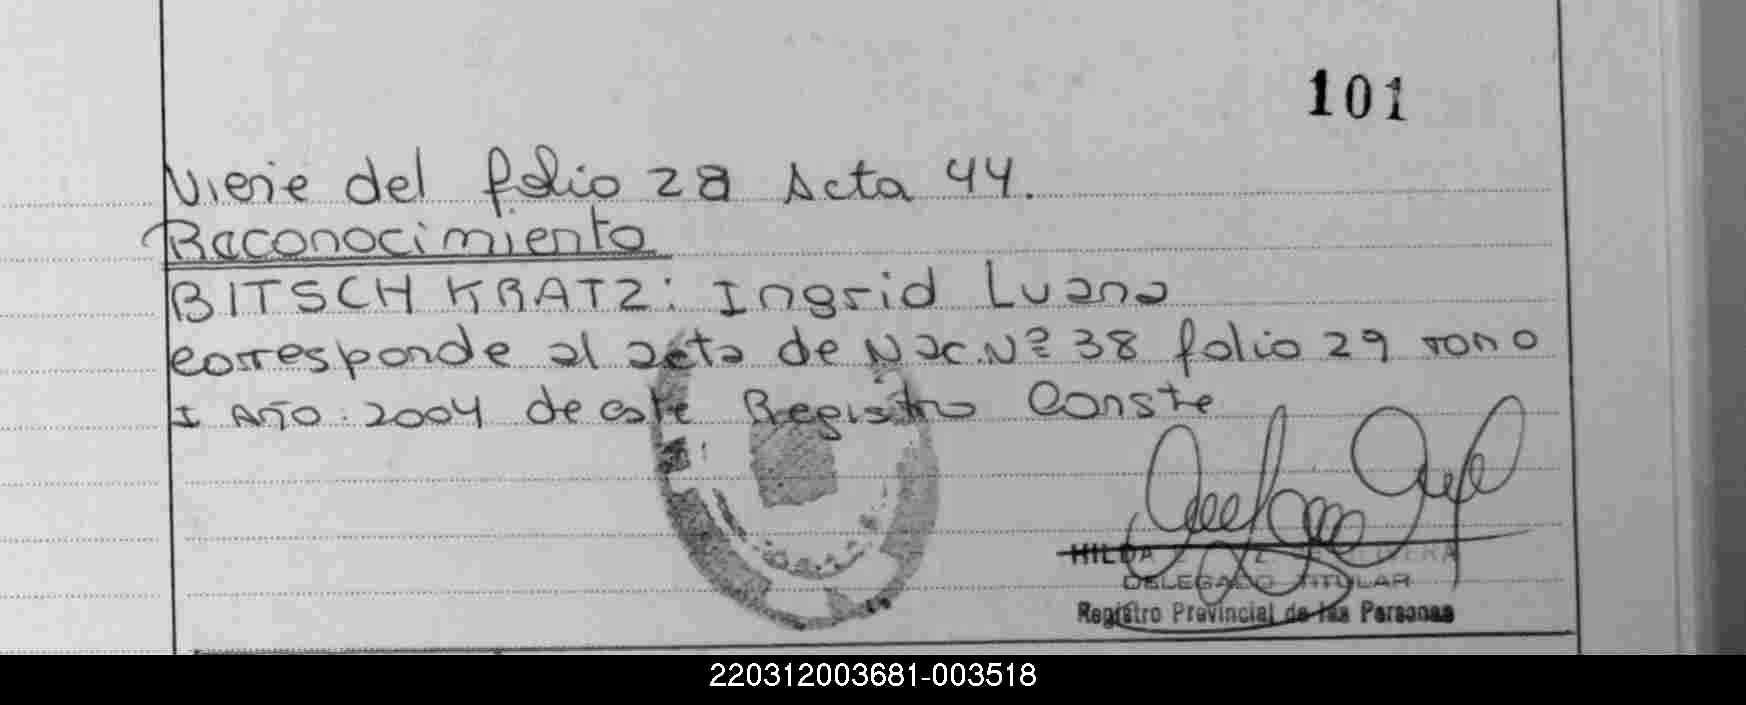 101
Viene del folio 28 Acta 44.
Reconocimiento
BITSCH KRATZ: Ingrid Luana
corresponde al acta de Nac. Nº 38 folio 29 TOMO
I AÑO: 2004 de este Registro Conste
HILDA
DELEGADO TITULAR
Registro Provincial de las Personas
220312003681-003518